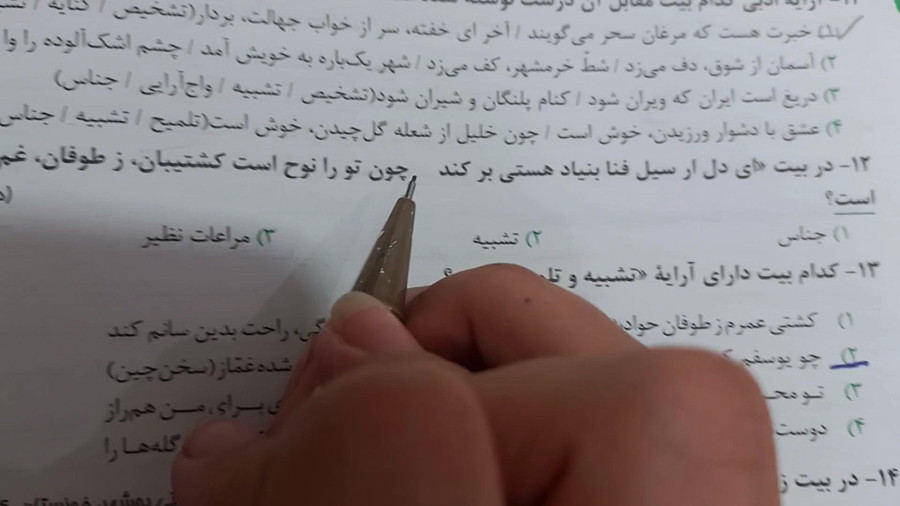 ۱) خبرت هست که مرغان سحر می‌گویند / آخر ای خفته، سر از خواب جهالت، بردار(تشخیص / کنایه /
۲) آسمان از شوق، دف می‌زد / شطّ خرمشهر، کف می‌زد / شهر یک‌باره به خویش آمد / چشم اشک‌آلوده را وا
۳) دریغ است ایران که ویران شود / کنام پلنگان و شیران شود(تشخیص / تشبیه / واج‌آرایی / جناس)
۴) عشق با دشوار ورزیدن، خوش است / چون خلیل از شعله گل‌چیدن، خوش است(تلمیح / تشبیه / جناس
۱۲- در بیت «ای دل ار سیل فنا بنیاد هستی بر کند چون تو را نوح است کشتیبان، ز طوفان، غم
است؟
۱) جناس ۲) تشبیه ۳) مراعات نظیر
۱۳- کدام بیت دارای آرایهٔ «تشبیه و
۱) کشتی عمرم ز طوفان راحت بدین سانم کند
۲) چو یوسفم شده غمّاز (سخن‌چین)
۳) تو برای من هم‌راز
۴) دوست گله‌ها را
۱۴- در بیت